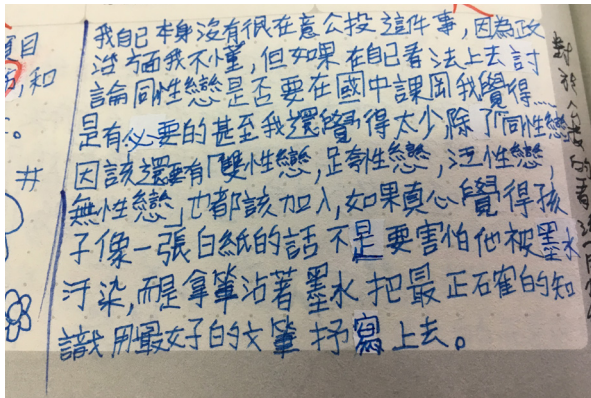 我自己本身沒有很在意公投這件事,因為政
治方面我不懂,但如果在自己看法上去討
論同性戀是否要在國中課岡我覺得...
是有必要的甚至我還覺得太少除了「同性戀」
因該還要有「雙性戀,跨性戀,泛性戀,
無性戀」也都該加入,如果真心覺得孩
子像一張白紙的話不是要害怕他被墨水
汙染,而是拿筆沾著墨水把最正確的知
識用最好的文筆抒寫上去。
項目
,和
#
對於公投的看法